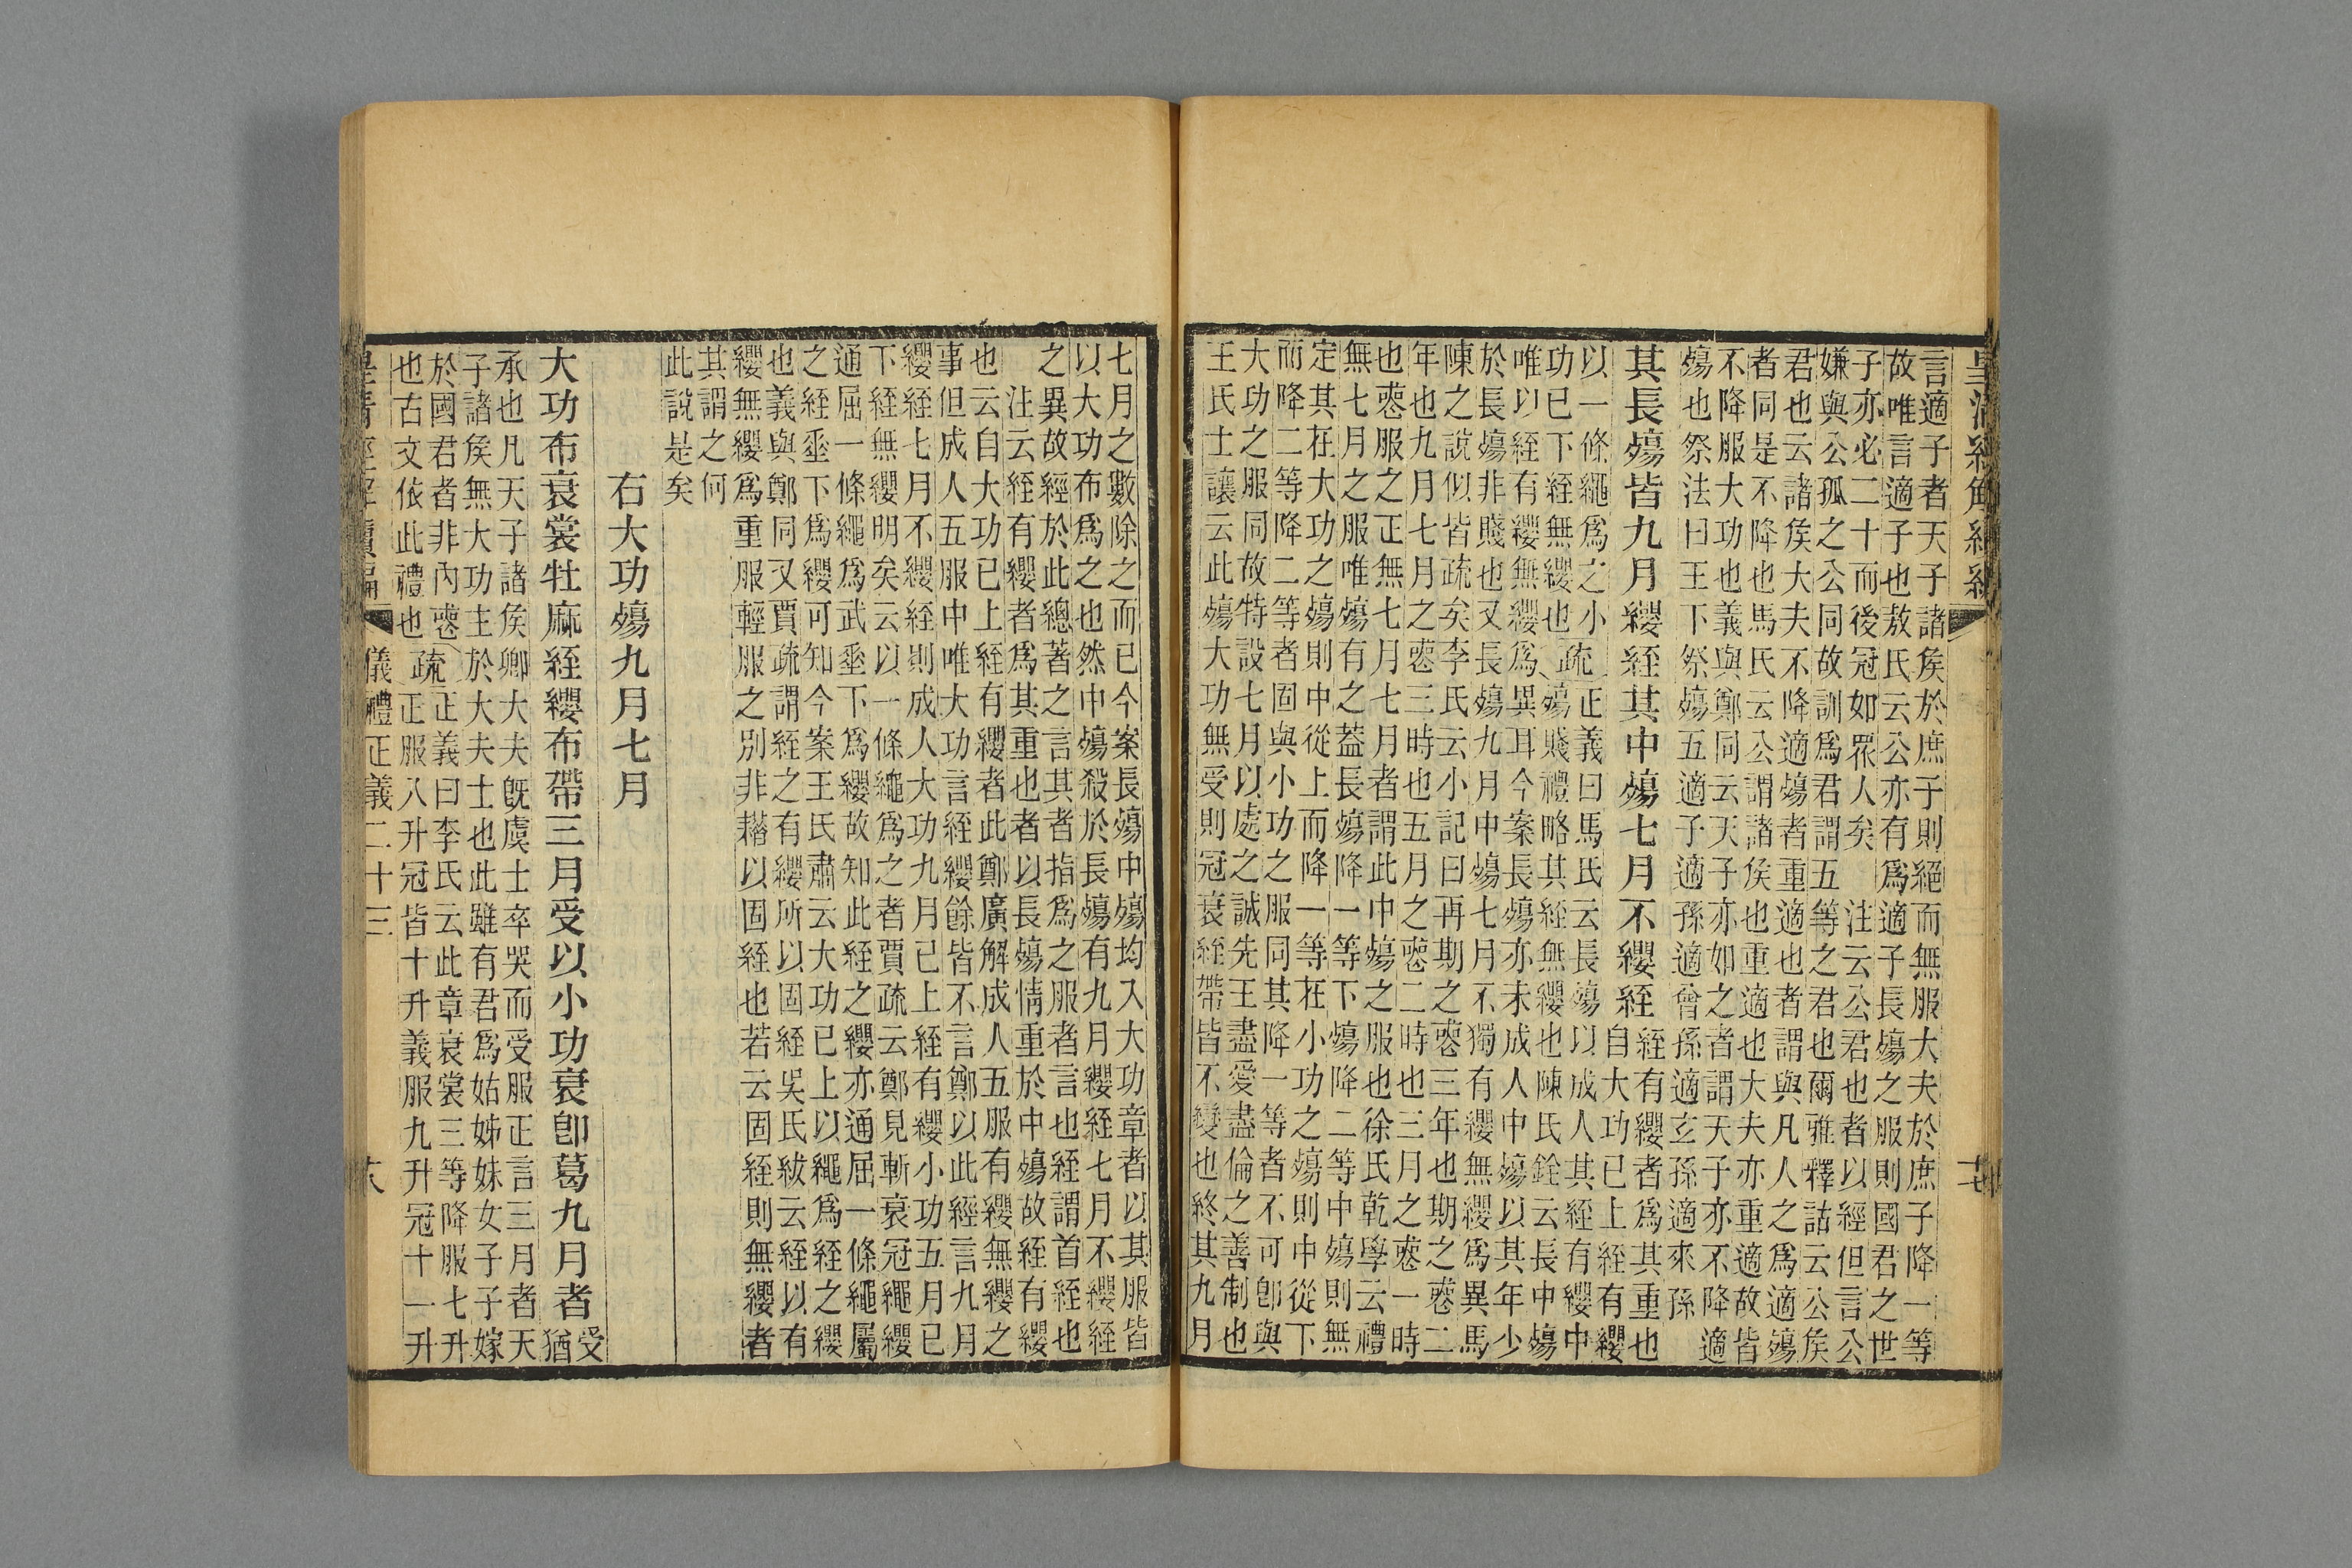 言適子者天子諸矦於庶子則絕而無服大夫於庶子降一等
故唯言適子也敖氏云公亦有爲適子長殤之服則國君之世
子亦必二十而後冠如眾人矣　注云公君也者以經但言公
嫌與公孤之公同故訓爲君謂五等之君也爾雅釋詁云公矦
君也云諸矦大夫不降適殤者重適也者謂與凡人之爲適殤
者同是不降也馬氏云公謂諸矦也重適也大夫亦重適故皆
不降服大功也義與鄭同云天子亦如之者謂天子亦不降適
殤也祭法曰王下祭殤五適子適孫適曾孫適玄孫適來孫
其長殤皆九月纓絰其中殤七月不纓絰
絰有纓者爲其重也
自大功已上絰有纓
以一條繩爲之小
功已下絰無纓也
疏
正義曰馬氏云長殤以成人其絰有纓中
殤賤禮略其絰無纓也陳氏銓云長中殤
唯以絰有纓無纓爲異耳今案長殤亦未成人中殤以其年少
於長殤非賤也又長殤九月中殤七月不獨有纓無纓爲異馬
陳之說似皆疏矣李氏云小記曰再期之喪三年也期之喪二
年也九月七月之喪三時也五月之喪二時也三月之喪一時
也喪服之正無七月七月者謂此中殤之服也徐氏乾學云禮
無七月之服唯殤有之蓋長殤降一等下殤降二等中殤則無
定其在大功之殤則中從上而降一等在小功之殤則中從下
而降二等降二等者固與小功之服同其降一等者不可卽與
大功之服同故特設七月以處之誠先王盡愛盡倫之善制也
王氏士讓云此殤大功無受則冠衰絰帶皆不變也終其九月
七月之數除之而已今案長殤中殤均入大功章者以其服皆
以大功布爲之也然中殤殺於長殤有九月纓絰七月不纓絰
之異故經於此總著之言其者指爲之服者言也絰謂首絰也
注云絰有纓者爲其重也者以長殤情重於中殤故絰有纓
也云自大功已上絰有纓者此鄭廣解成人五服有纓無纓之
事但成人五服中唯大功言絰纓餘皆不言鄭以此經言九月
纓絰七月不纓絰則成人大功九月已上絰有纓小功五月已
下絰無纓明矣云以一條繩爲之者賈疏云鄭見斬衰冠繩纓
通屈一條繩爲武垂下爲纓故知此絰之纓亦通屈一條繩屬
之絰垂下爲纓可知今案王氏肅云大功已上以繩爲絰之纓
也義與鄭同又賈疏謂絰之有纓所以固絰吳氏紱云絰以有
纓無纓爲重服輕服之別非藉以固絰也若云固絰則無纓者
其謂之何
此說是矣
右大功殤九月七月
大功布衰裳牡麻絰纓布帶三月受以小功衰卽葛九月者
受
猶
承也凡天子諸矦卿大夫旣虞士卒哭而受服正言三月者天
子諸矦無大功主於大夫士也此雖有君爲姑姊妹女子子嫁
於國君者非內喪
也古文依此禮也
疏
正義曰李氏云此章衰裳三等降服七升
正服八升冠皆十升義服九升冠十一升
儀禮正義二十三